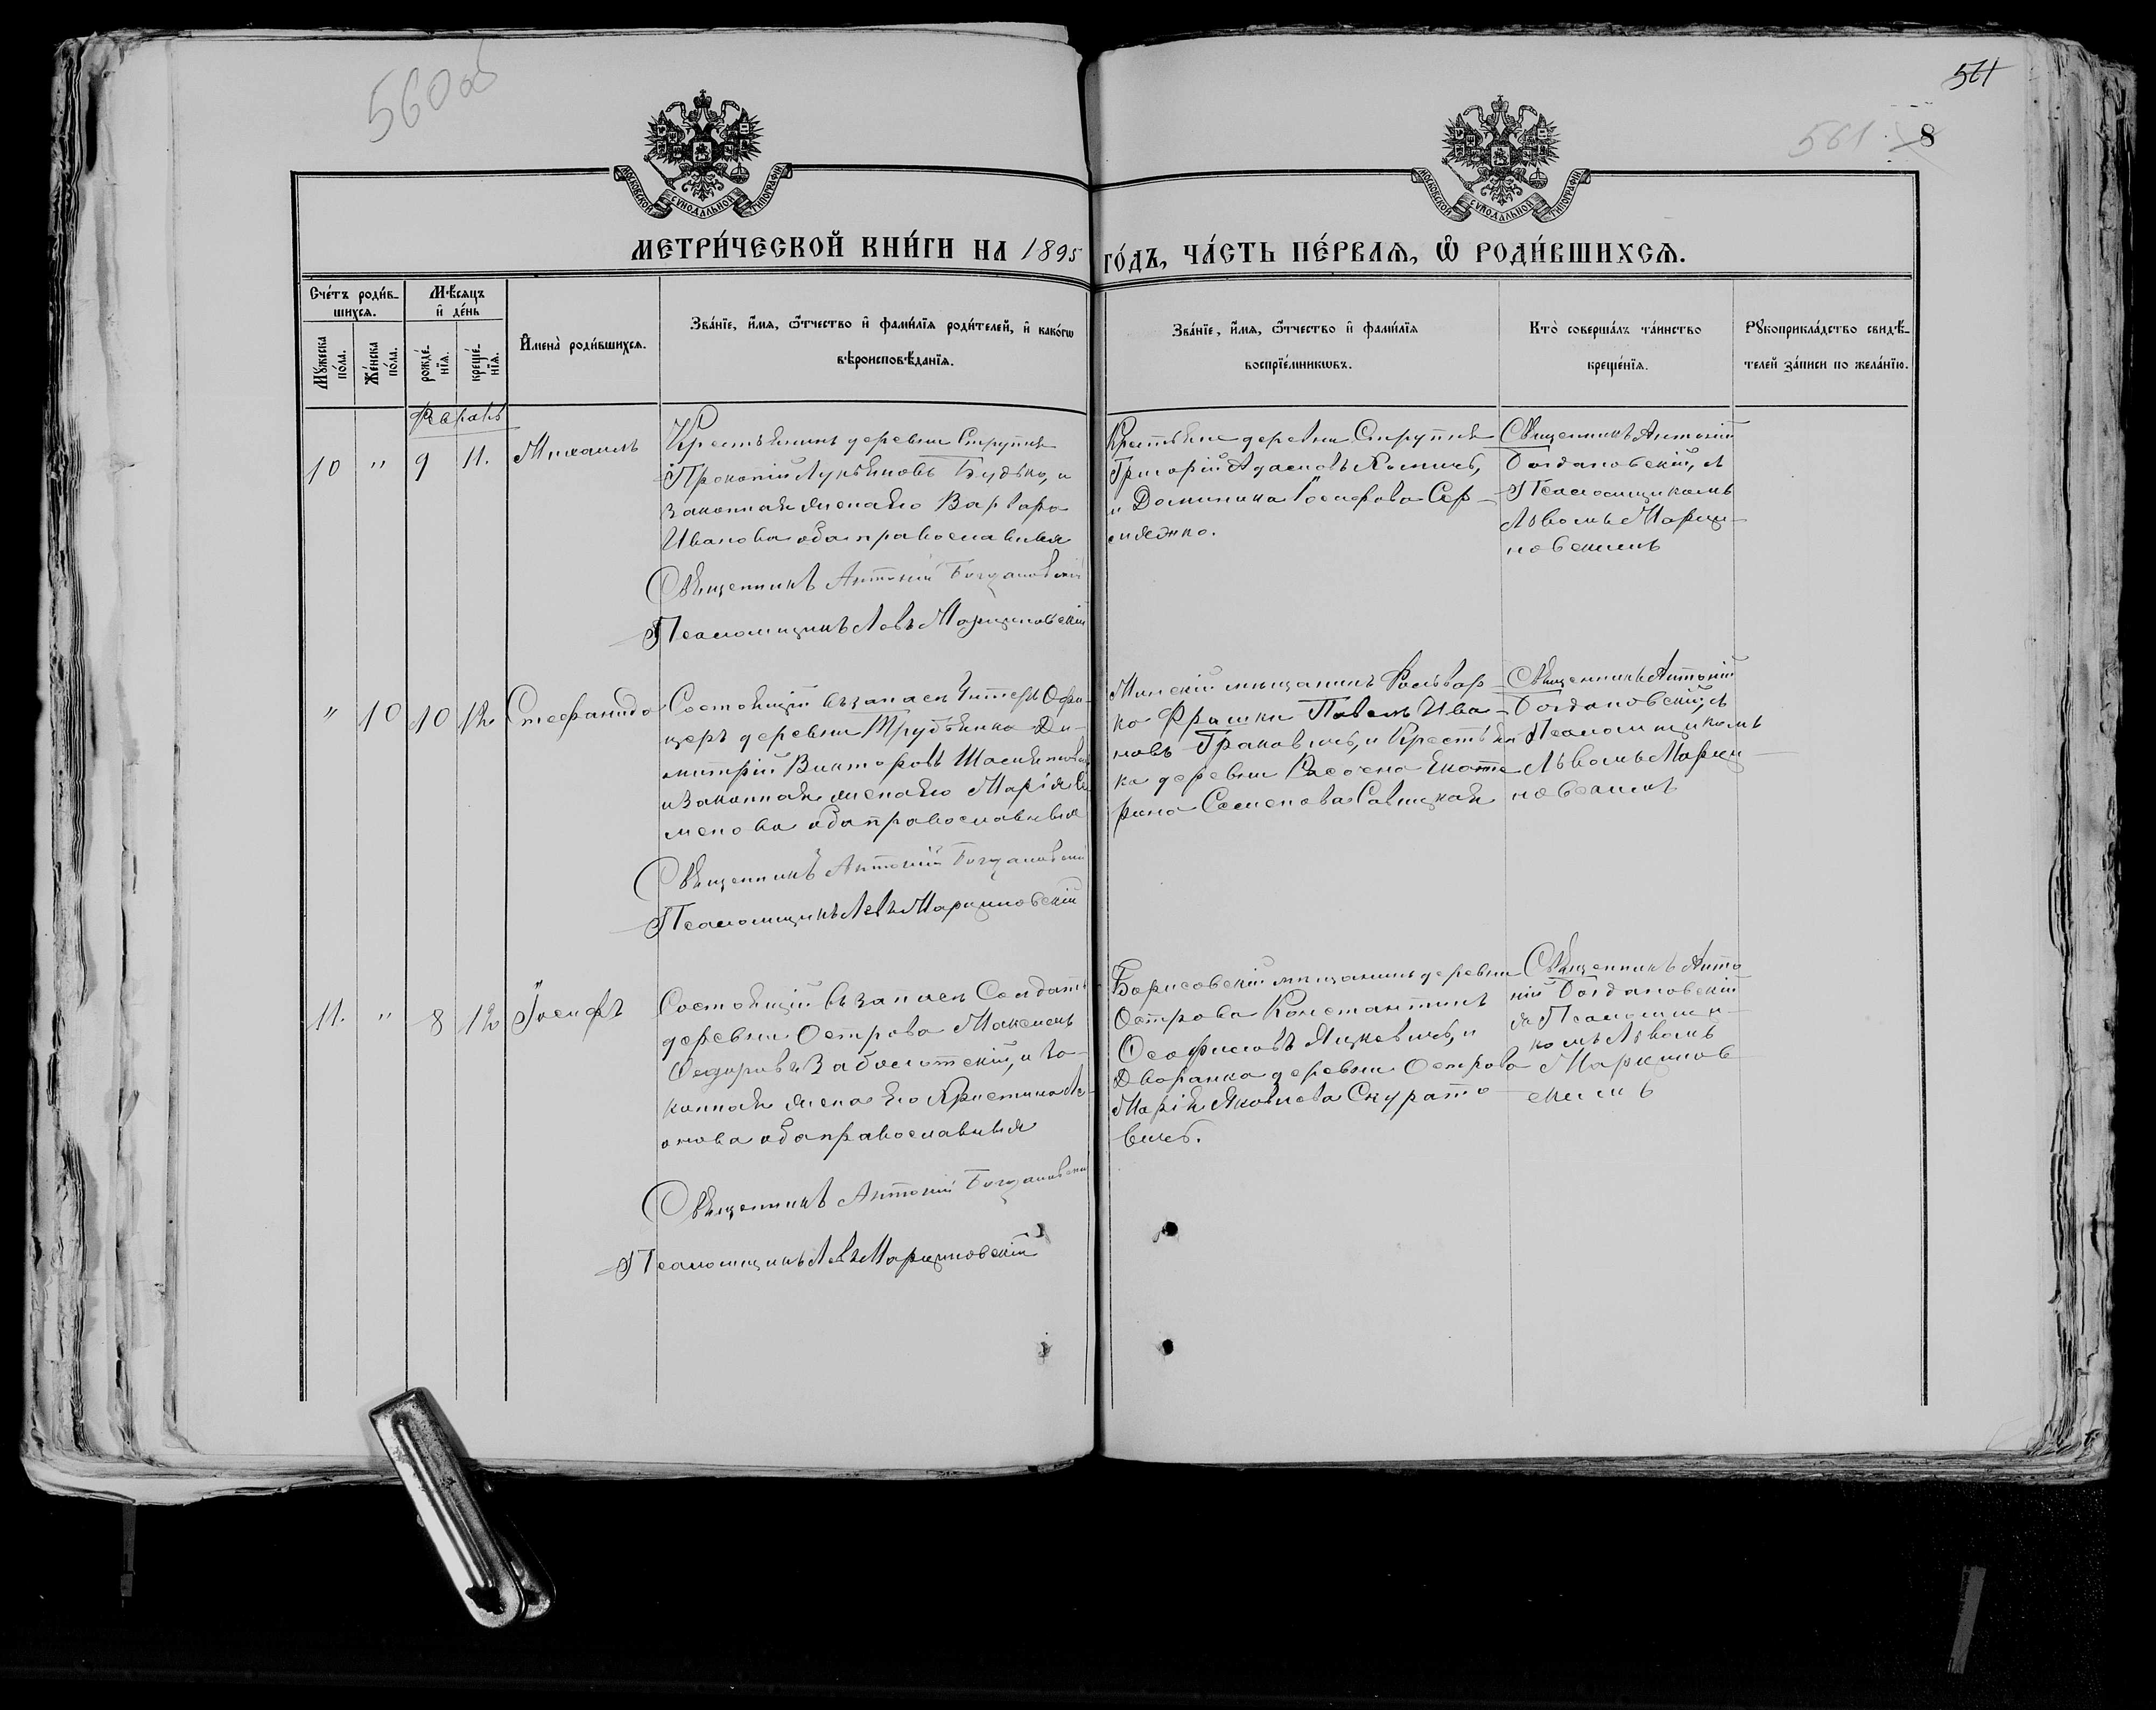 560об
561
561
8
МОСКОВСКОЙ СУНОДАЛЬНОЙ ТИПОГРАФІИ
МОСКОВСКОЙ СУНОДАЛЬНОЙ ТИПОГРАФІИ
МЕТРИ́ЧЕСКОЙ КНИ́ГИ НА 1895 ГО́ДЪ, ЧА́СТЬ ПЕ́РВАѦ, Ѽ РОДИ́ВШИХСѦ.
Сче́тъ роди́в-
шихсѧ.
Мꙋ́жеска по́ла.
Же́нска по́ла.
Мѣ́сѧцъ
и҆ де́нь
рожде́-
нїѧ.
креще́-
нїѧ.
И҆мена̀ роди́вшихсѧ.
Зва́нїе, и҆́мѧ, ѻ҆́тчество и҆ фами́лїѧ роди́телей, и҆ како́гѡ
вѣроисповѣ́данїѧ.
Зва́нїе, и҆́мѧ, ѻ҆́тчество и҆ фами́лїѧ
воспрїе́мникѡвъ.
Кто̀ соверша́лъ та́инство
креще́нїѧ.
Рꙋкоприкла́дство свидѣ́-
телей за́писи по жела́нїю.
Февраль
10 " 9 11. Михаилъ
Крестьянинъ деревни Струпня
Прокопій Лукьяновъ Будько, и
законная жена его Варвара
Иванова оба православныя
Священникъ Антоній Богдановскій
Псаломщикъ Левъ Марциновскій
Крестьяне деревни Струпня
Григорій Адамовъ
и Доминика Іосифова Сер-
мяжко.
Священникъ Антоній
Богдановскій, съ
Псаломщикомъ
Львомъ Марци-
новскимъ
" 10 10 12 Стефанида
Состоящій въ запасѣ Унтеръ Офи-
церъ деревни Трудянка Ди-
митрій Викторовъ
и законная жена его Марія Се
менова оба православныя
Священникъ Антоній Богдановскій
Псаломщикъ Левъ Марциновскій
Минскій мѣщанинъ Фольвар-
ка Фрашки Павелъ Ива-
новъ Граковичъ, и Крестьян
ка деревни Екате
рина Семенова Савицкая
Священникъ Антоній
Богдановскій, съ
Псаломщикомъ
Львомъ Марци-
новскимъ
11. " 8 12 Іосифъ
Состоящій въ запасѣ Солдатъ
деревни Острова Максимъ
Ѳеодоровъ Заболотскій, и за-
конная жена его Христина Ле-
онова оба православныя
Священникъ Антоній Богдановскій
Псаломщикъ Левъ Марциновскій
Борисовскій мѣщанинъ деревни
Острова Константинъ
Ѳеофиловъ Яцкевичъ, и
Дворянка деревни Острова
Марія Яковлева Скурато
вичъ.
Священникъ Анто
ній Богдановскій
съ Псаломщи-
комъ Львомъ
Марцинов
скимъ